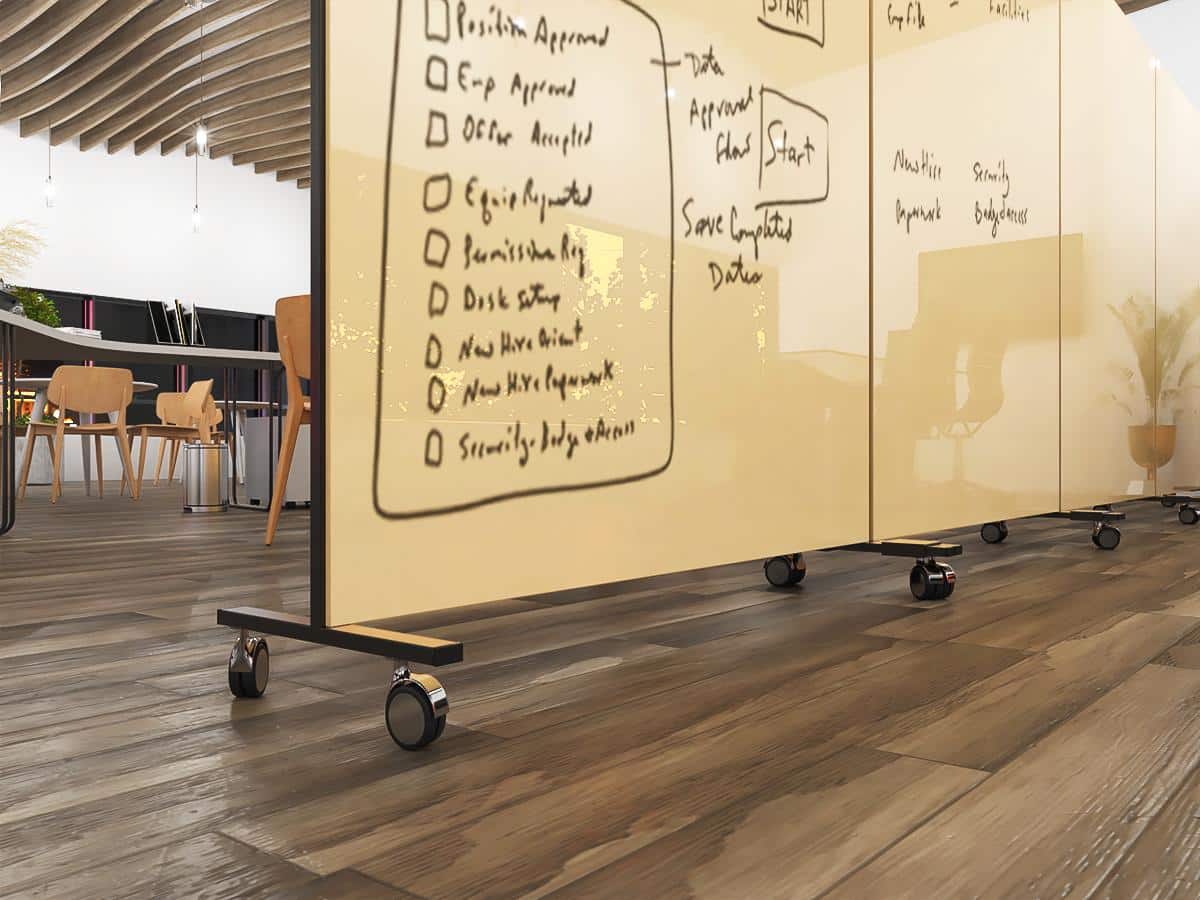 Position Approved
Emp Approved
Offer Accepted
Equip Requested
Permission Req
Desk Setup
New Hire Orient
New Hire Paperwork
Security Badge + Access
START
Data
Approval
Show
Start
Save Completed
Dates
Emp File - Facilities
New Hire
Paperwork
Security
Badge access